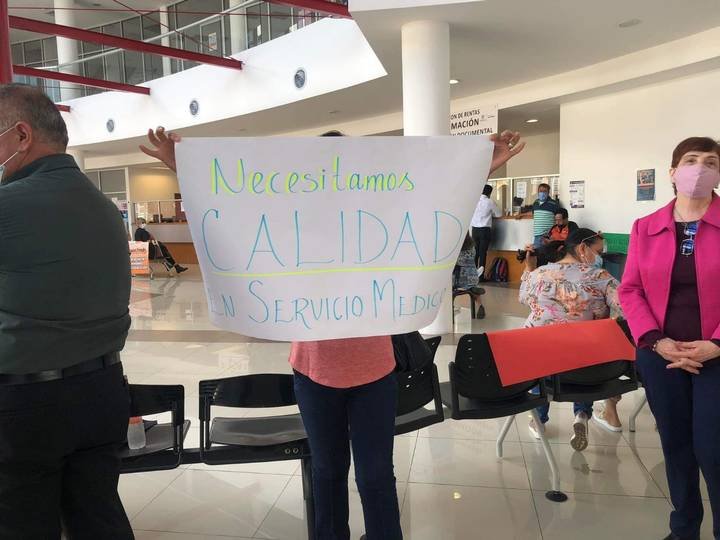 ON DE RENTAS
MACIÓN
N DOCUMENTAL
Necesitamos
CALIDAD
EN SERVICIO MEDICO